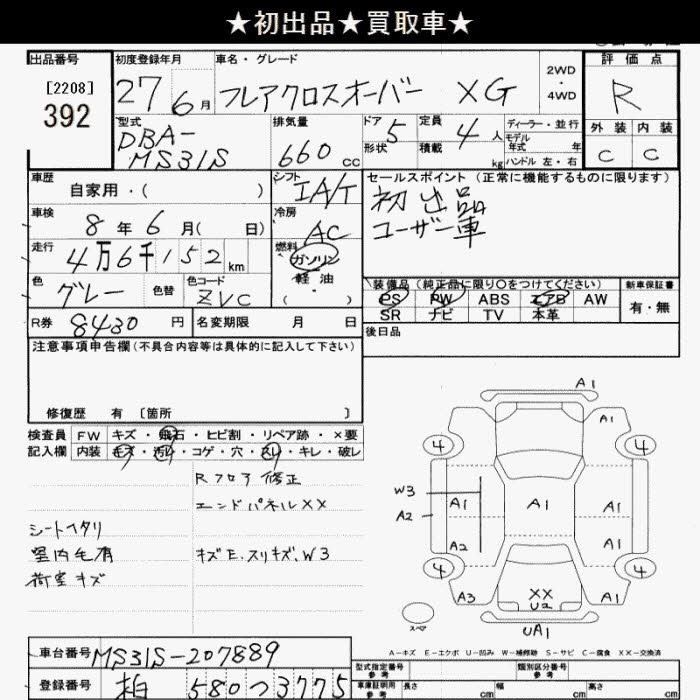 ★初出品★買取車★
出品番号
[2208]
392
初度登録年月
27年6月
車名・グレード
フレアクロスオーバー XG
2WD
・
4WD
評価点
R
外装 内装
C C
型式
DBA-
MS31S
排気量
660cc
ドア
5
形状
定員
4人
積載
kg
ディーラー・並行
モデル
年式 年
ハンドル 左・右
車歴
自家用・( )
シフト
IA/T
セールスポイント (正常に機能するものに限ります)
初出品
ユーザー車
車検
8年6月( 日)
冷房
AC
走行
4万6千152km
燃料
ガソリン
軽油
( ・ )
色
グレー
色替
色コード
ZVC
装備品(純正品に限り○をつけてください)
PS PW ABS エアB AW
SR ナビ TV 本革
新車保証書
有・無
R券 8430円
名変期限 月 日
後日品
注意事項申告欄(不具合内容等は具体的に記入して下さい)
修復歴 有 〔箇所 〕
検査員
記入欄
FW キズ・飛石・ヒビ割・リペア跡・×要
内装 キズ・汚レ・コゲ・穴・スレ・キレ・破レ
Rフロア修正
エンドパネルXX
シートヘタリ
室内毛有
荷室キズ
キズE.スリキズ、W3
A1
A1
4
4
W3
A1
A1
A1
A2
A2
A1
4
4
A3
XX
U2
A1
スペア
UA1
A－キズ E－エクボ U－凹み W－補修跡 S－サビ C－腐食 XX－交換済
車台番号 MS31S-207889
登録番号 柏 580つ3775
型式指定番号
参考
類別区分番号
参考
車庫証明用
参考
長さ cm
幅 cm
高さ cm